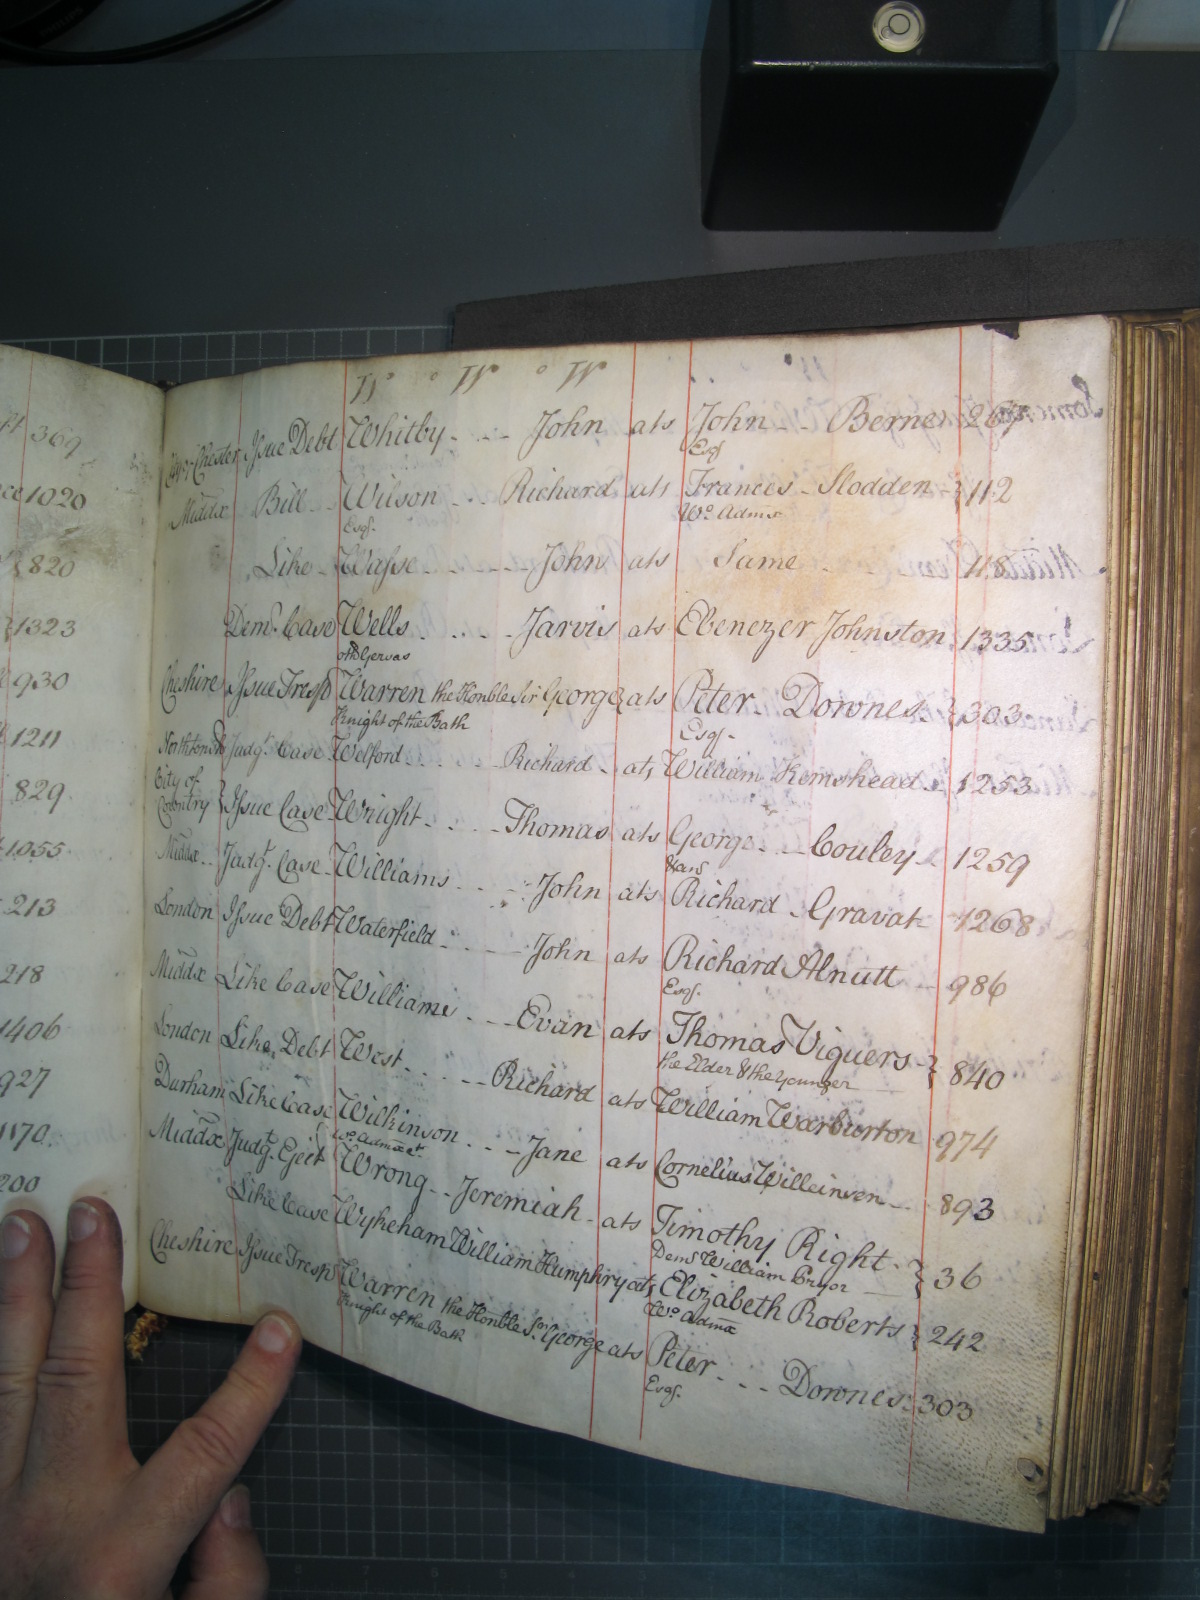 W W W
Chester Issue Debt Whitby John ats John Berne 269
Esqr.
Middx Bill Wilson Richard ats Frances Slodden 112
Esqr. Wo. Admx
Like Wasse John ats Same 118
Demr. Case Wells Jarvis ats Ebenezer Johnston 1335
oths Gervas
Cheshire Issue Tresps Warren the Honble Sir George ats Peter Downes 303
Knight of the Bath Esqr.
Northton Judgt. Case Welford Richard ats William Kemshead 1253
City of
Coventry Issue Case Wright Thomas ats George Couley 1259
Middx Judgt. Case Williams John ats Richard Gravat 1268
London Issue Debt Waterfield John ats Richard Alnutt 986
Esqr.
Middx Like Case Williams Evan ats Thomas Viguers 840
the Elder & the Younger
London Like Debt West Richard ats William Warburton 974
Durham Like Case Wilkinson Jane ats Cornelius Willeinven 893
Wo. Admx et
Middx Judgt. Eject Wrong Jeremiah ats Timothy Right 36
Dems William Pryor
Like Case Wykeham William Humphry ats Elizabeth Roberts 242
Wo. Admx
Cheshire Issue Tresps Warren the Honble Sr. George ats Peter Downes 303
Knight of the Bath Esqr.
369
1020
820
1323
930
1211
829
1055
213
218
1406
927
1170
200